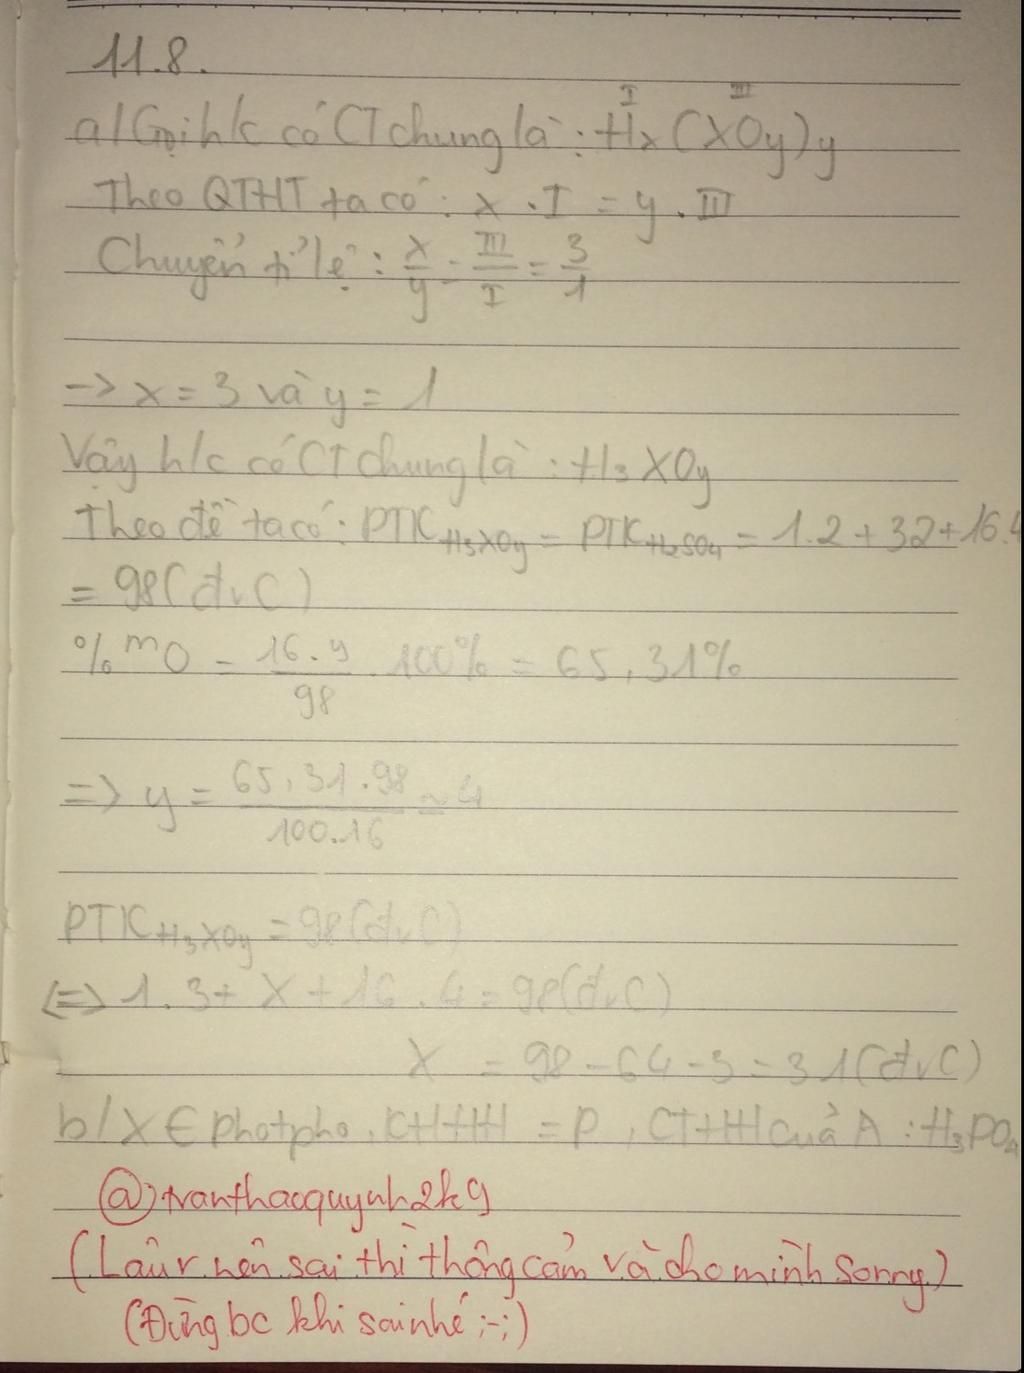 11.8.
I III
a/ Gọi h/c có CT chung là : Hx(XOy)y
Theo QTHT ta có : x . I = y . III
Chuyển tỉ lệ : x/y = III/I = 3/1
-> x = 3 và y = 1
Vậy h/c có CT chung là : H3XOy
Theo đề ta có : PTK H3XOy = PTK H2SO4 = 1.2 + 32 + 16.4
= 98 (đvC)
%mO = 16.y/98 . 100% = 65,31%
=> y = 65,31.98/100.16 = 4
PTK H3XOy = 98(đvC)
<=> 1.3 + X + 16.4 = 98(đvC)
X = 98 - 64 - 3 = 31(đvC)
b/ X ∈ photpho, KHHH = P, CTHH của A : H3PO4
@tranthaoquynh2k9
(Lâu r nên sai thì thông cảm và cho mình sorry)
(Đừng bc khi sai nhé ;-;)